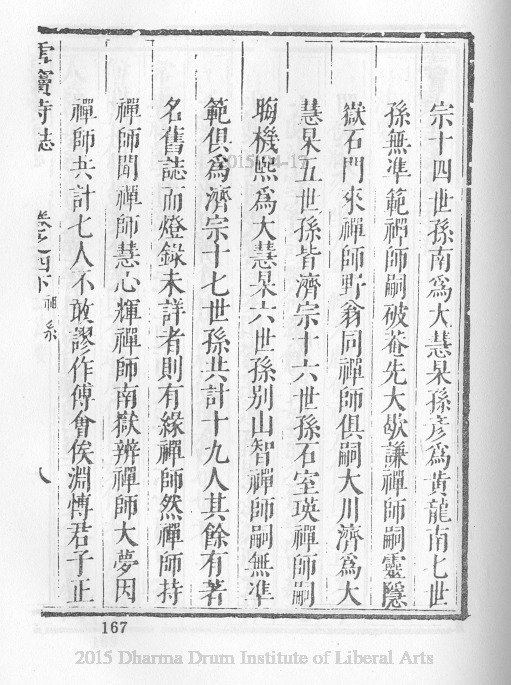 宗十四世孫南為大慧杲孫彥為黃龍南七世
孫無準範禪師嗣破菴先大歇謙禪師嗣靈隱
嶽石門來禪師野翁同禪師俱嗣大川濟為大
慧杲五世孫皆濟宗十六世孫石室瑛禪師嗣
晦機熙為大慧杲六世孫別山智禪師嗣無準
範俱為濟宗十七世孫共計十九人其餘有著
名舊誌而燈錄未詳者則有緣禪師然禪師持
禪師聞禪師慧心輝禪師南嶽辨禪師大夢因
禪師共計七人不敢謬作傅會俟淵博君子正
雪竇寺誌 卷之四下 祖系 八
167
2015 Dharma Drum Institute of Liberal Arts